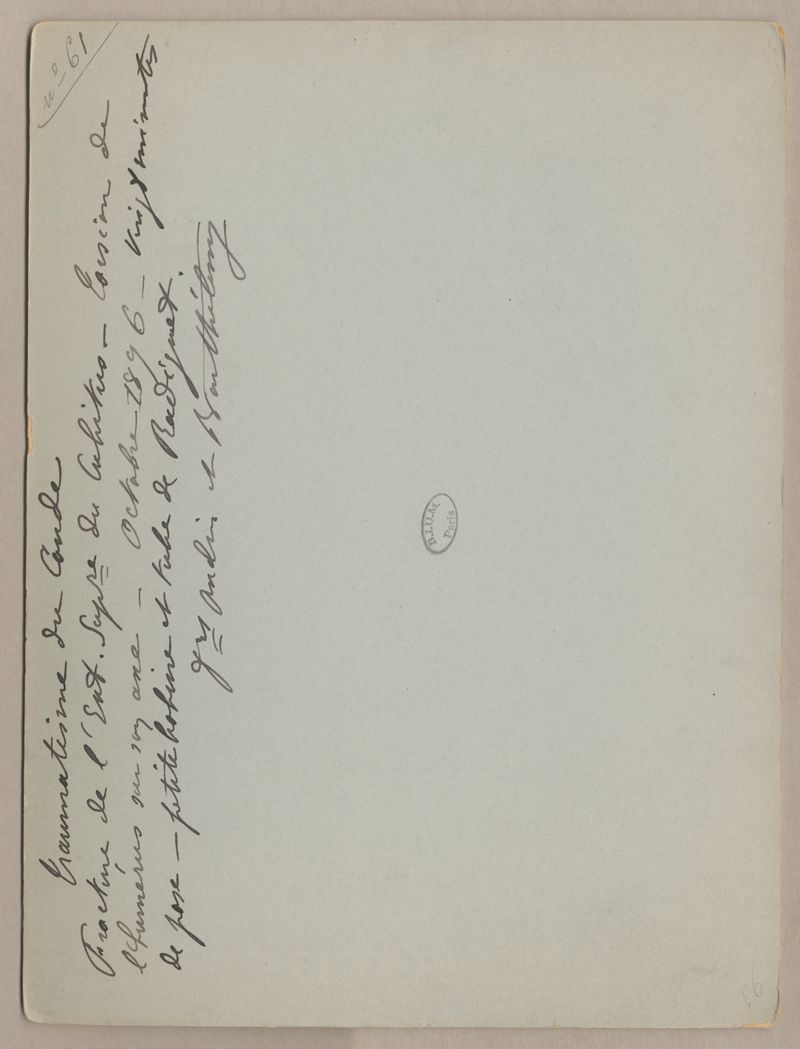 n° 61
Traumatisme du Coude
Fracture de l'Ext. Supre du Cubitus — Torsion de
l'humérus sur son axe — Octobre 1896 — Vingt minutes
de pose — petite bobine et tube de Radiguet.
Drs Oudin et Barthélemy
B.I.U.M.
Paris